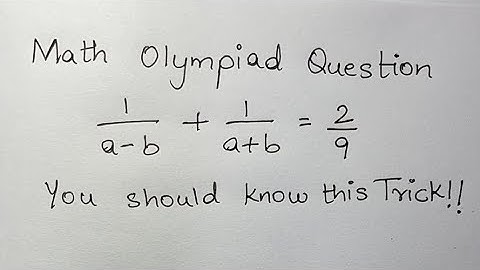 Math Olympiad Question
1/(a-b) + 1/(a+b) = 2/9
You should know this Trick!!